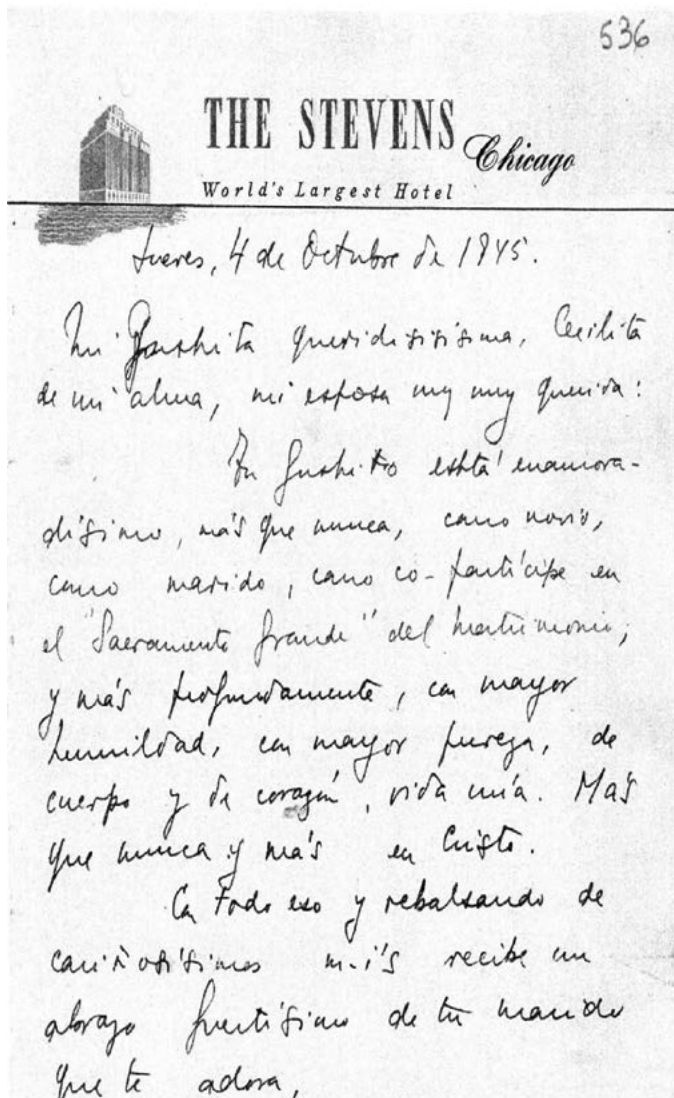 536
THE STEVENS Chicago
World's Largest Hotel
Jueves, 4 de Octubre de 1945.
Mi queridisisisima, Cecilita
de mi alma, mi esposa muy muy querida:
Tu está enamora-
disimo, más que nunca, como novio,
como marido, como co-partícipe en
el "Sacramento grande" del matrimonio;
y más profundamente, con mayor
humildad, con mayor pureza, de
cuerpo y de corazón, vida mía. Más
que nunca y más en Cristo.
Con todo eso y rebalsando de
cariñosísimos m-i's recibe un
abrazo fuertísimo de tu marido
que te adora,